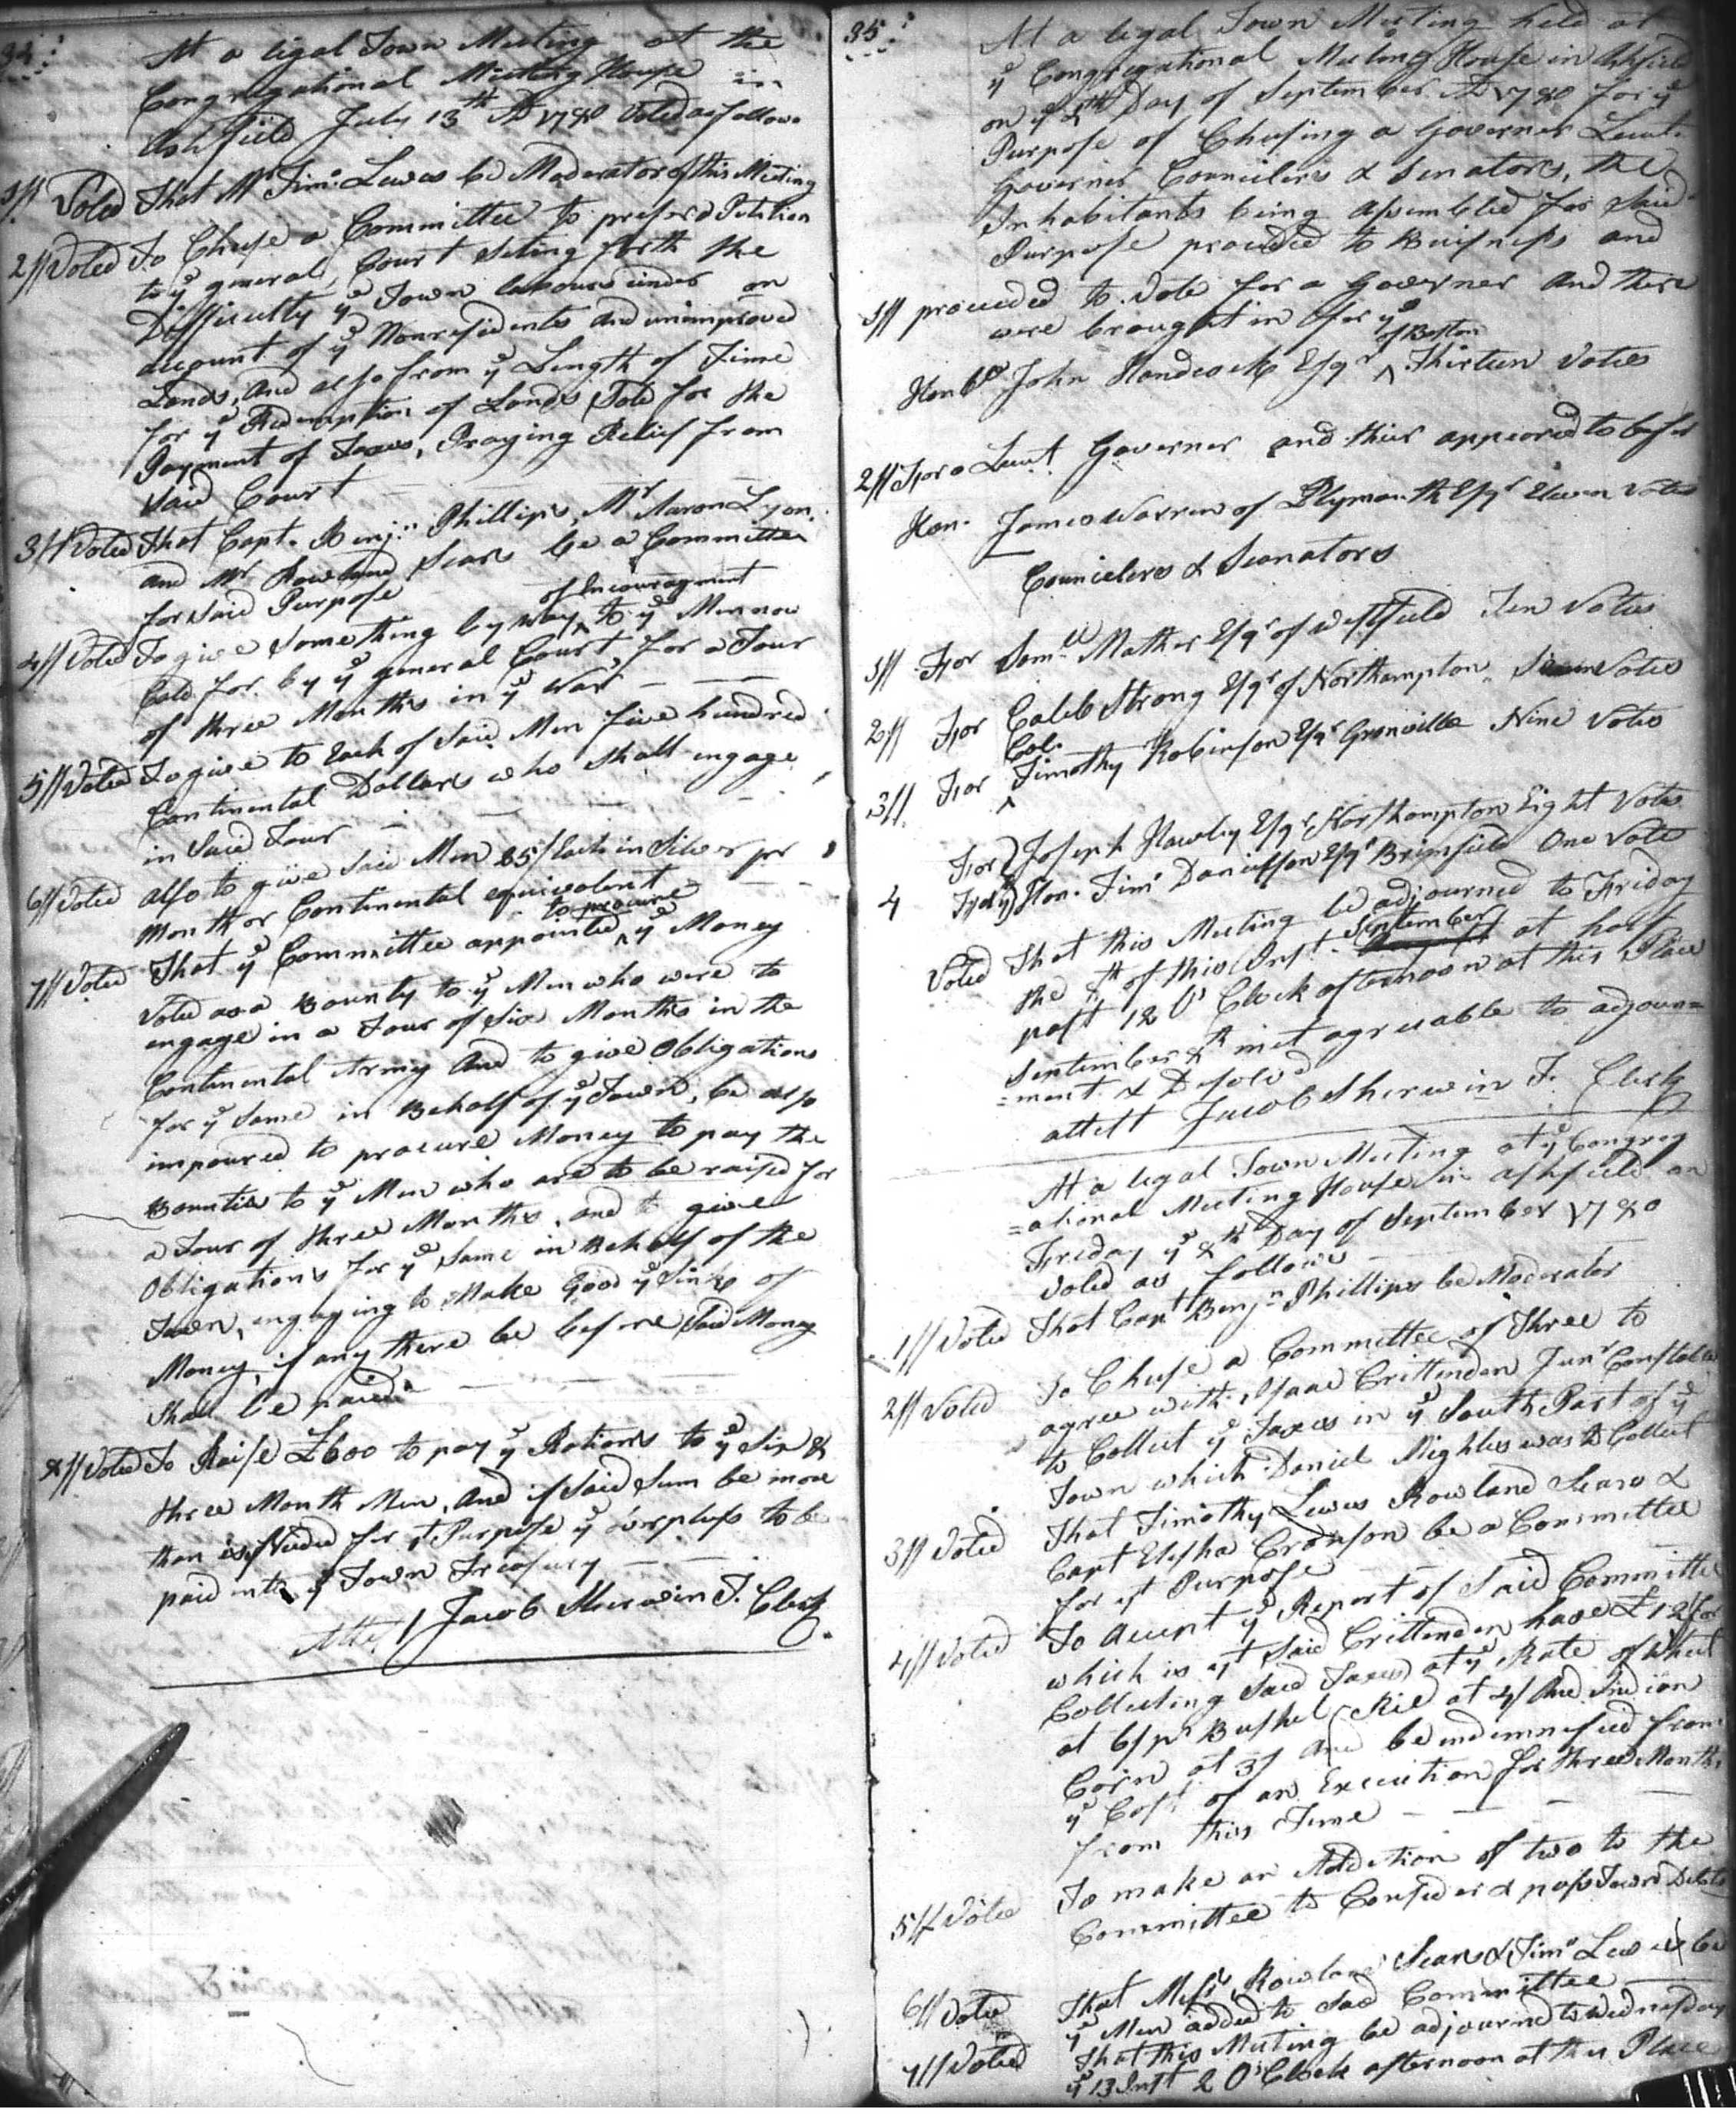 34
At a legal Town Meeting at the
Congregational Meeting House in
Ashfield July 13th AD 1780 Voted as follows
1// Voted That Mr Timo Lewes be Moderator of this Meeting
2// Voted To Chuse a Committee to prefer a Petition
to ye general Court Seting forth the
Difficulty ye Town labours under on
account of ye Nonresidents and unimproved
Lands, And also from ye Length of Time
for ye Redemption of Lands Sold for the
Payment of Taxes, Praying Relief from
Said Court
3// Voted That Capt. Benjn Phillips, Mr Aaron Lyon
and Mr Rowland Sears be a Committee
for Said Purpose
4// Voted To give Something by way ^ of Incouragment to ye Men now
Cald for by ye general Court, for a Tour
of three Months in ye War
5// Voted To give to Each of Said Men five hundred
Continental Dollars who Shall engage
in Said Tour
6// Voted also to give Said Men 25/ Each in Silver pr
Month or Continental equivolent
7// Voted That ye Committee appointed ^ to procure ye Money
Voted as a Bounty to ye Men who were to
engage in a Tour of Six Months in the
Continental Army And to give Obligations
for ye Same in Behalf of ye Town, be also
impoured to procure Money to pay the
Bounties to ye Men who are to be raised for
a Tour of three Months, and to give
Obligations for ye Same in Behalf of the
Town, engaging to Make Good ye Sink of
Money, if any there be before Said Money
Shall be paid
8// Voted To Raise £600 to pay ye Rations to ye Six &
three Month Men, And if Said Sum be more
than is Needed for yt Purpose ye overpluss to be
paid into ye Town Treasury
Attest Jacob Sherwin T. Clerk
35
At a legal Town Meeting held at
ye Congregational Meeting House in Ashfield
on ye 4th Day of September AD 1780 for ye
Purpose of Chusing a Governer Leut.
Governer Counciler's & Senators, the
Inhabitants being assembled for Said
Purpose proceeded to Buisness and
1// proceeded to Vote for a Governer And there
were brought in for ye
Honble John Handcock Esqr ^ of Boston Thirteen Votes
2// For a Leut Governer and their appeared to be for
Hon. James Warren of Plymouth Esqr Eleven Votes
Councielers & Seanators
1// For Samll Mather Esqr of Westfield Ten Votes
2// For Caleb Strong Esqr of Northampton Votes
3// For ^ Col. Timothy Robinson Esqr Granville Nine Votes
For Joseph Hawley Esqr Northampton Eight Votes
4 For ye Hon. Timo Danielson Esqr Brimfield One Vote
Voted That this Meeting be adjourned to Friday
the 8th of this Inst. September at half
past 12 O' Clock afternoon at this Place
September 8th met agreable to adjourn=
=ment & Desolved
attest Jacob Sherwin T. Clerk
At a legal Town Meeting at ye Congreg
=ational Meeting House in ashfield on
Friday ye 8th Day of September 1780
Voted as follows
1// Voted That Capt Benjn Phillips be Moderator
2// Voted To Chuse a Committee of Three to
agree with Isaac Crittenden Junr Constable
to Collect ye Taxes in ye South Part of ye
Town which Daniel Mighles was to Collect
3// Voted That Timothy Lewes Rowland Sears &
Capt Elisha Cronson be a Committee
for yt Purpose
4// Voted To Accept ye Report of Said Committee
which is yt Said Crittenden have £12 for
Collecting Said Taxes at ye Rate of Wheat
at 6/ pr Bushel Rie at 4/ And Indian
Corn at 3/ And be indemnified from
ye Cost of an Execution for three Months
from this Time
5// Voted To make an Addition of two to the
Committee to Consider & pass Town Debts
6// Voted That Messrs Rowland Sears & Timo Lewes be
ye Men added to Said Committee
7// Voted That this Meeting be adjourned to Wednesday
ye 13 Inst 2 O'Clock afternoon at this Place